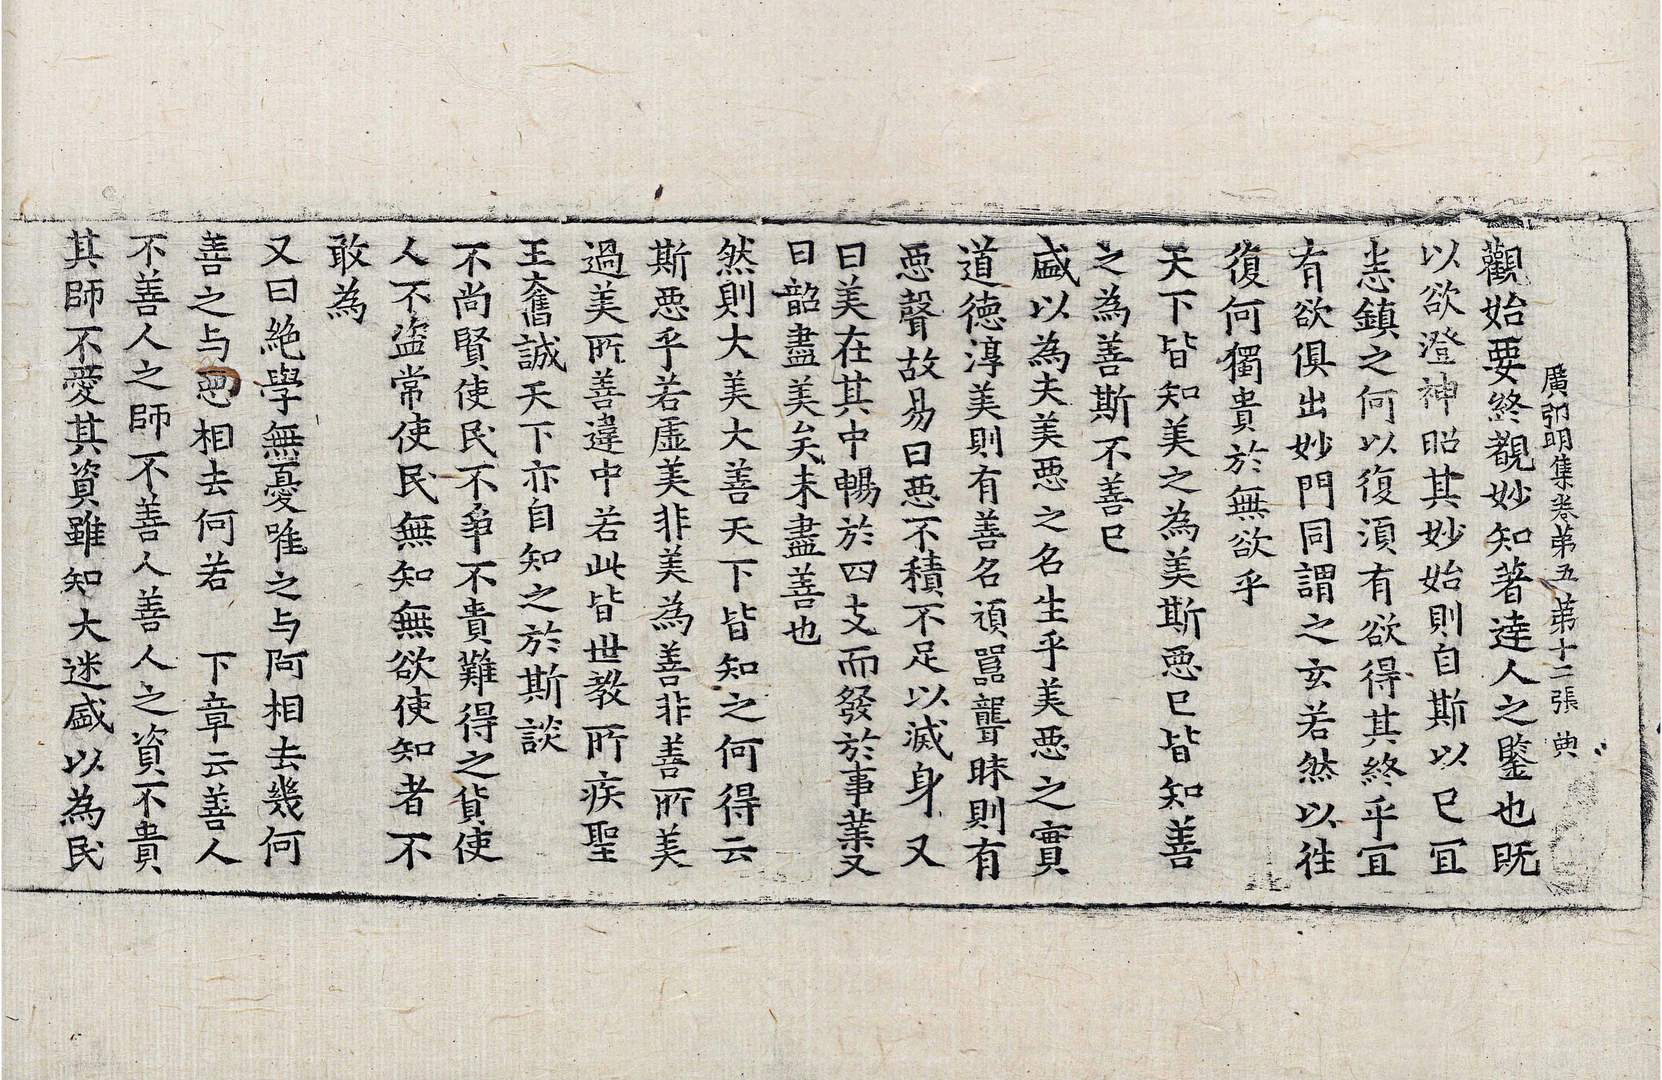 廣弘明集卷第五　第十二張　典
觀始要終覩妙知著達人之鑒也既
以欲澄神昭其妙始則自斯以已冝
恙鎮之何以復湏有欲得其終乎冝
有欲俱出妙門同謂之玄若然以徃
復何獨貴於無欲乎
天下皆知美之為美斯惡已皆知善
之為善斯不善已
盛以為夫美惡之名生乎美惡之實
道德淳美則有善名頑嚚聾昧則有
惡聲故易曰惡不積不足以滅身又
曰美在其中暢於四支而發於事業又
曰韶盡美矣未盡善也
然則大美大善天下皆知之何得云
斯惡乎若虛美非美為善非善所美
過美所善違中若此皆世教所疾聖
王奮誠天下亦自知之於斯談
不尚賢使民不爭不貴難得之貨使
人不盜常使民無知無欲使知者不
敢為
又曰絕學無憂唯之与阿相去幾何
善之与惡相去何若　下章云善人
不善人之師不善人善人之資不貴
其師不愛其資雖知大迷盛以為民